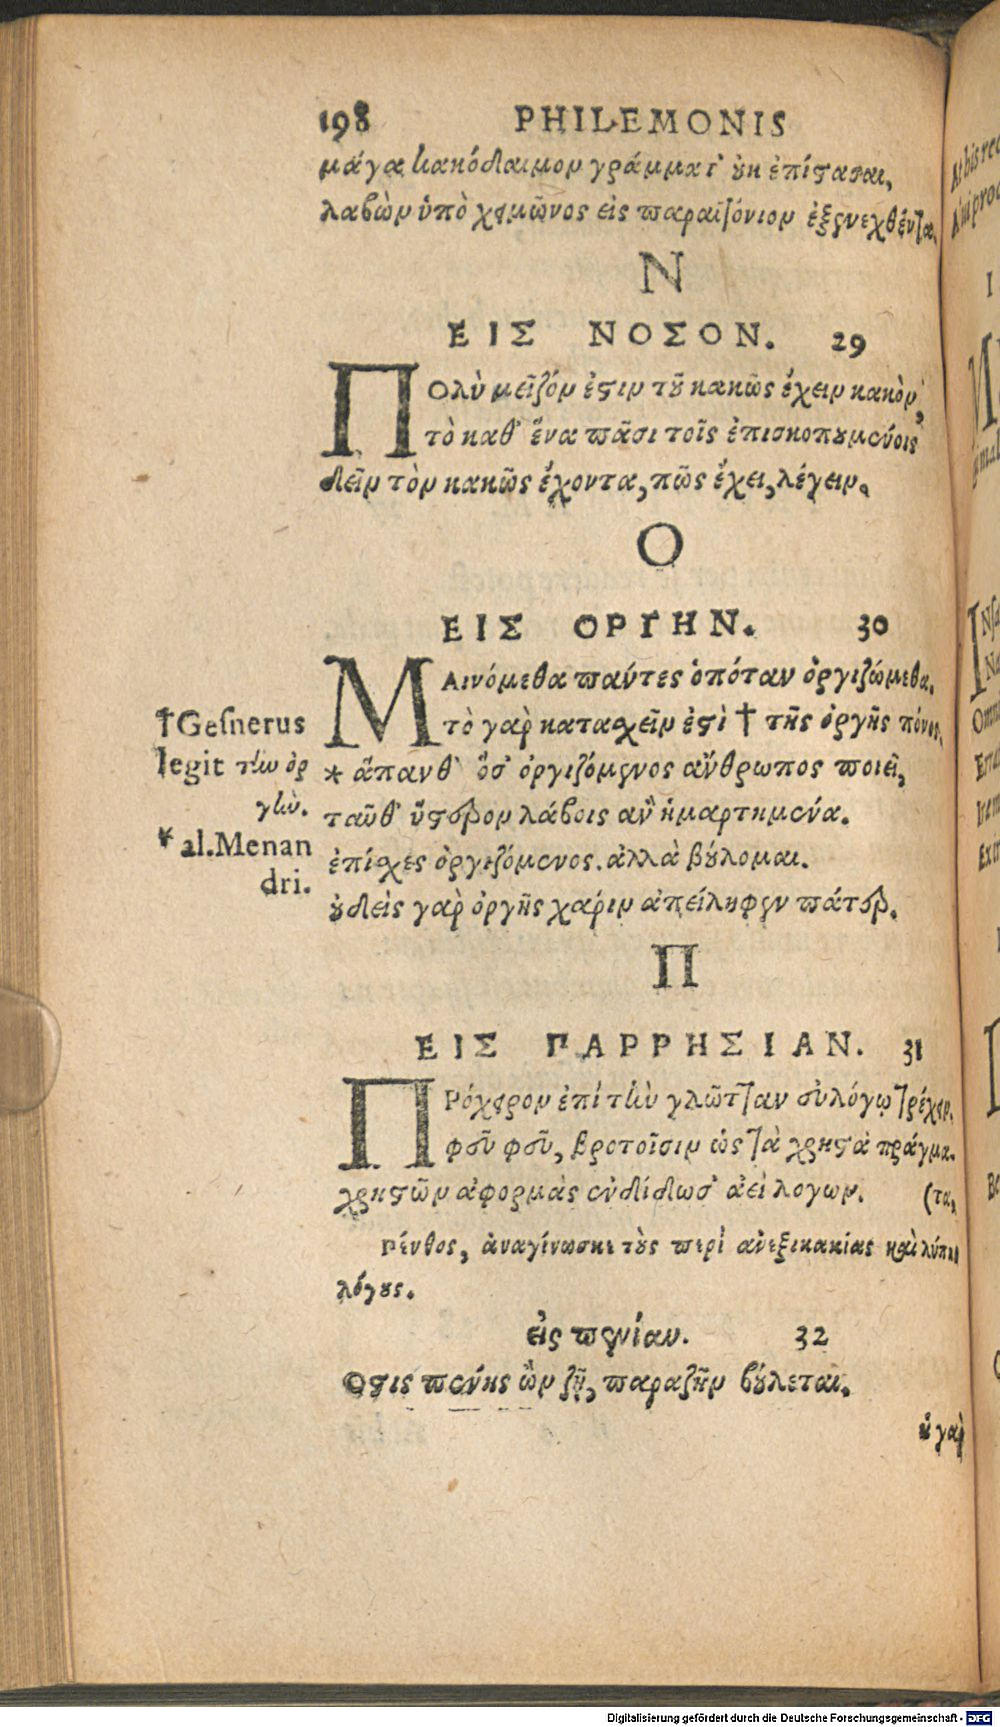 198 PHILEMONIS
μάγα κακόδαιμον γράμματ' οὐκ ἐπίστασαι,
λαβὼν ὑπὸ χειμῶνος εἰς παραϊτόνιον ἐξενεχθέντα.
Ν
ΕΙΣ ΝΟΣΟΝ. 29
ΠΟλὺ μεῖζόν ἐστιν τοῦ κακῶς ἔχειν κακὸν,
τὸ καθ' ἕνα πᾶσι τοῖς ἐπισκοπουμένοις
δεῖν τὸν κακῶς ἔχοντα, πῶς ἔχει, λέγειν.
Ο
ΕΙΣ ΟΡΓΗΝ. 30
ΜΑινόμεθα πάντες ὁπόταν ὀργιζώμεθα.
τὸ γὰρ κατασχεῖν ἐστὶ † τῆς ὀργῆς πόνος.
* ἅπανθ' ὅσ' ὀργιζόμενος ἄνθρωπος ποιεῖ,
ταῦθ' ὕστερον λάβοις ἂν ἡμαρτημένα.
ἐπίσχες ὀργιζόμενος. ἀλλὰ βούλομαι.
οὐδεὶς γὰρ ὀργῆς χάριν ἀπείληφεν πάτερ.
†Gesnerus
legit τὴν ὀρ
γὴν.
* al. Menan
dri.
Π
ΕΙΣ ΠΑΡΡΗΣΙΑΝ. 31
ΠΡόχειρον ἐπὶ τὴν γλῶτταν εὐλόγῳ τρέχειν.
φεῦ φεῦ, βροτοῖσιν ὡς τὰ χρηστὰ πράγμα-
χρηστῶν ἀφορμὰς ἐνδίδωσ' ἀεὶ λόγων. (τα,
Πένθος, ἀναγίνωσκε τοὺς περὶ ἀνεξικακίας καὶ λύπης
λόγους.
εἰς πενίαν. 32
Οστις πένης ὢν ζῇ, παραζῆν βούλεται.
οὐ γὰρ
Digitalisierung gefördert durch die Deutsche Forschungsgemeinschaft - DFG